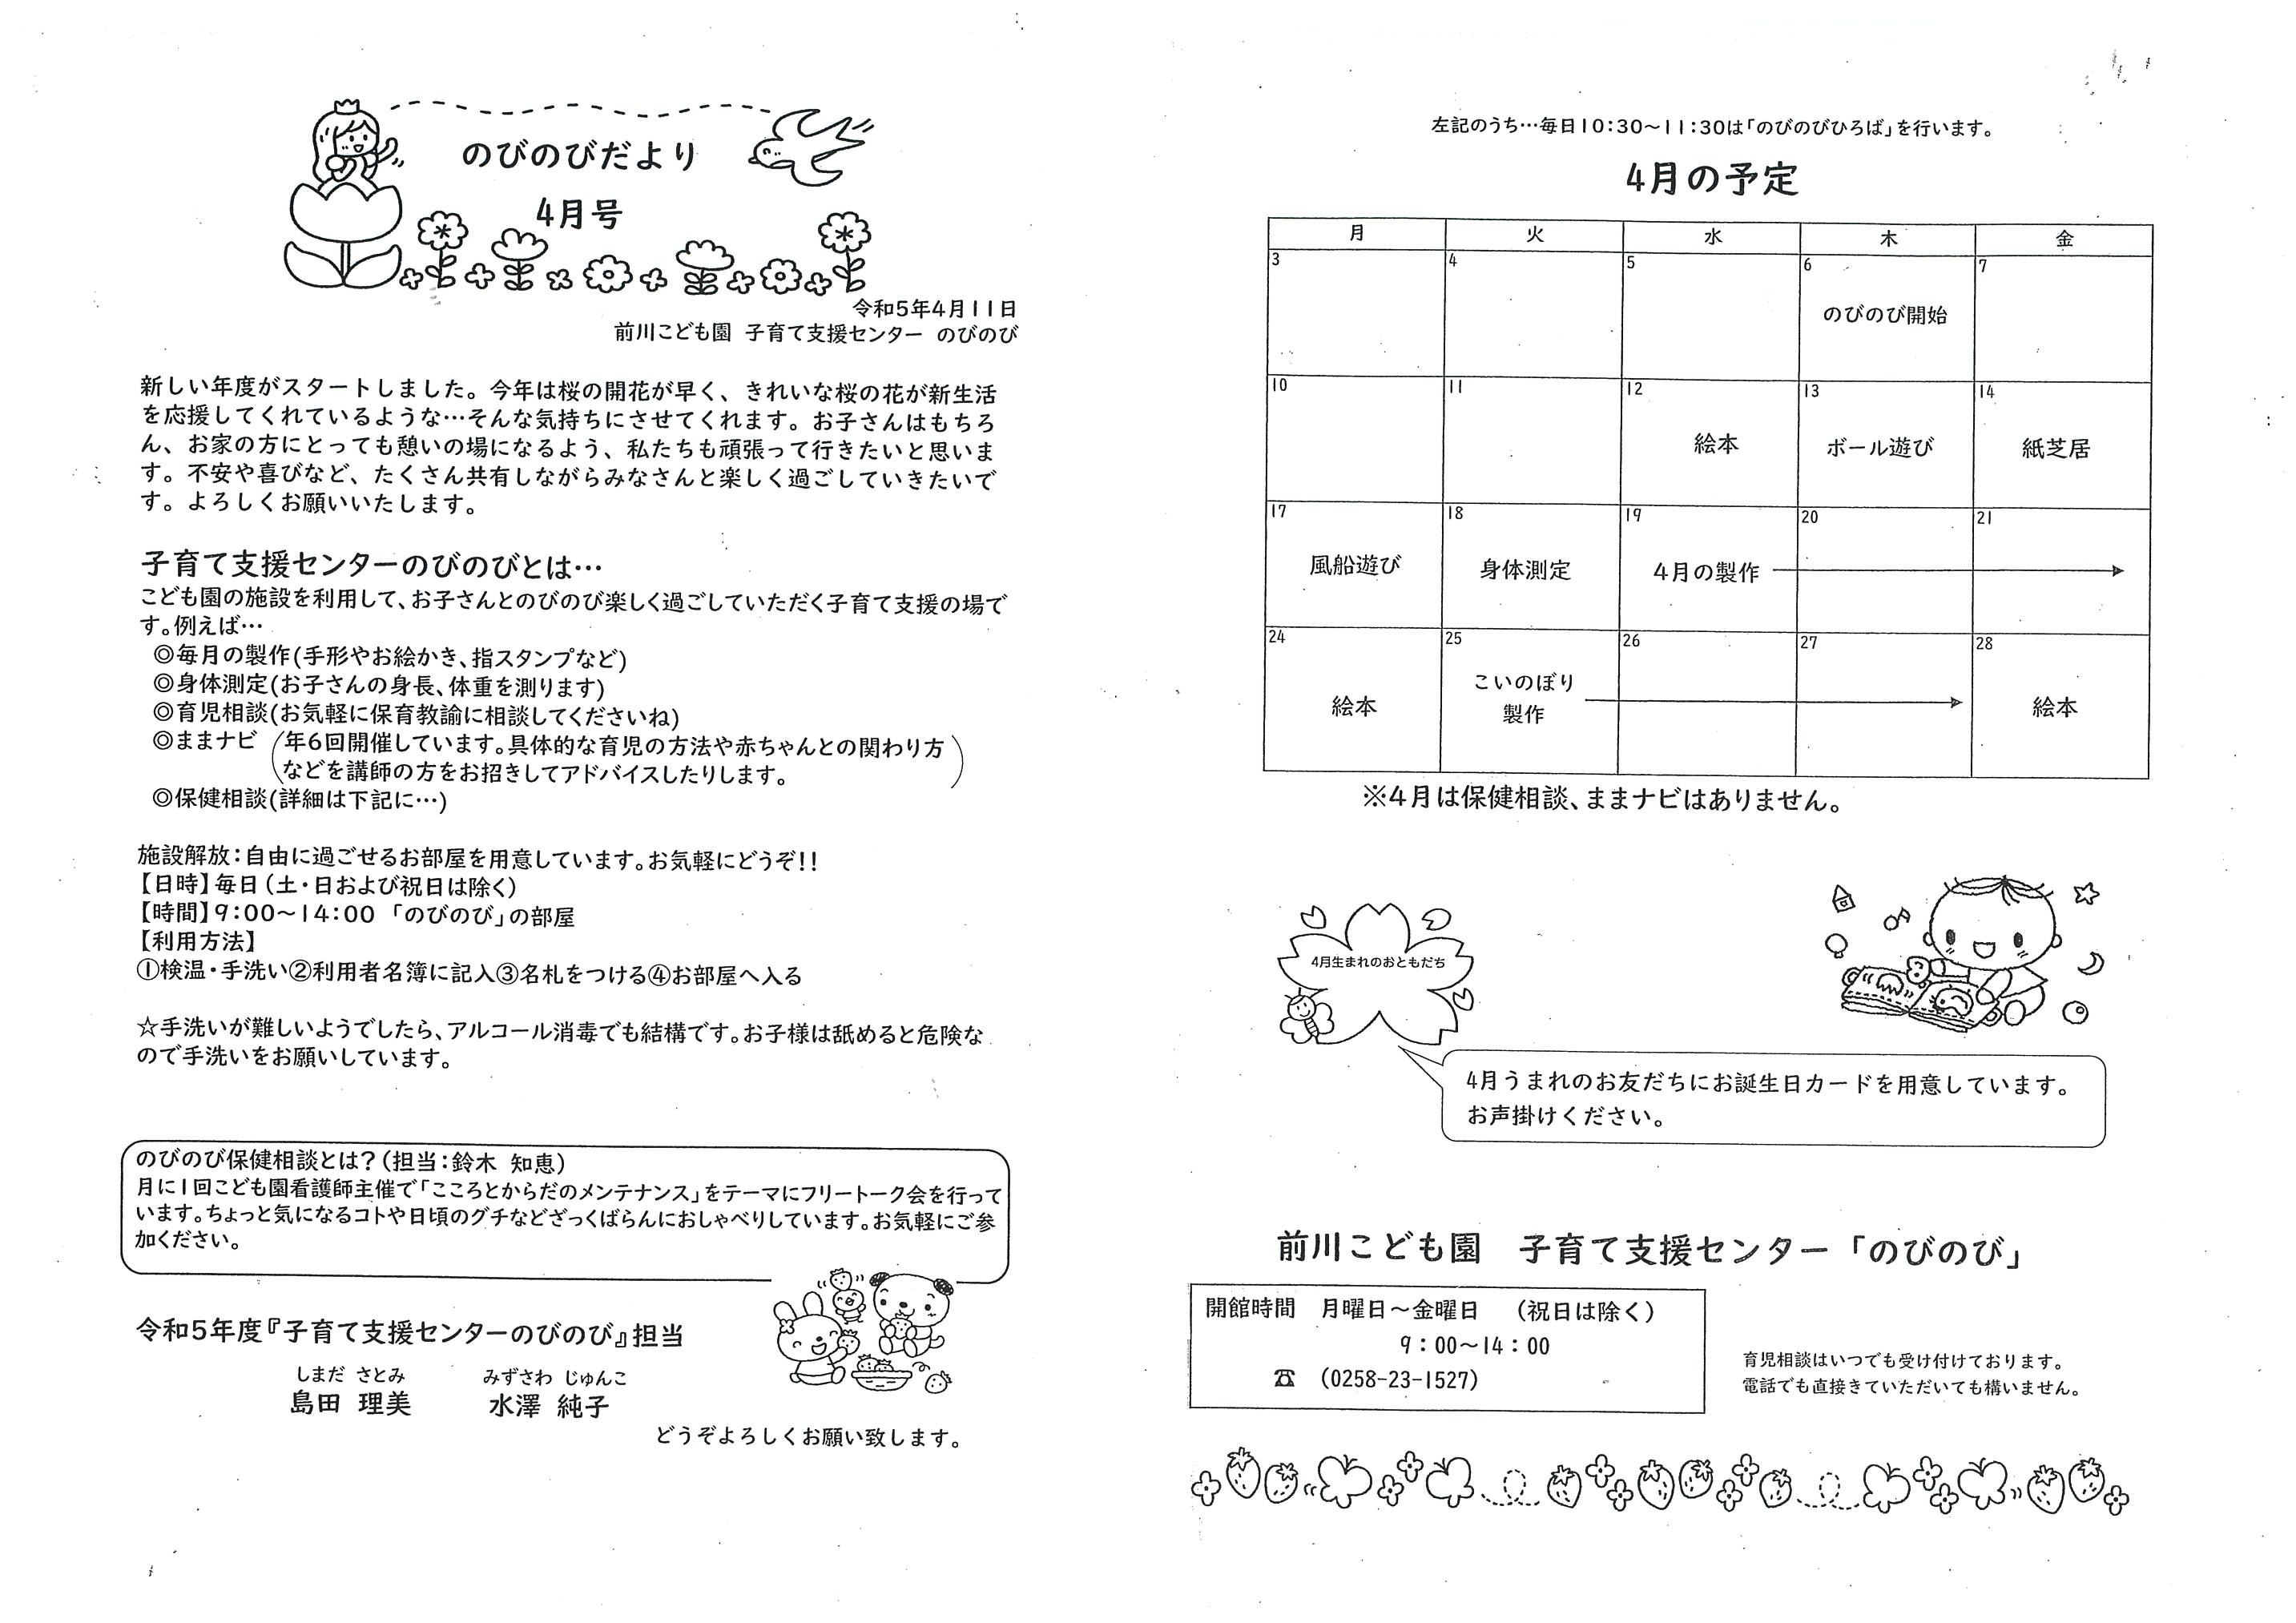 のびのびだより
4月号
令和5年4月11日
前川こども園 子育て支援センター のびのび
新しい年度がスタートしました。今年は桜の開花が早く、きれいな桜の花が新生活
を応援してくれているような…そんな気持ちにさせてくれます。お子さんはもちろ
ん、お家の方にとっても憩いの場になるよう、私たちも頑張って行きたいと思いま
す。不安や喜びなど、たくさん共有しながらみなさんと楽しく過ごしていきたいで
す。よろしくお願いいたします。
子育て支援センターのびのびとは…
こども園の施設を利用して、お子さんとのびのび楽しく過ごしていただく子育て支援の場で
す。例えば…
◎毎月の製作(手形やお絵かき、指スタンプなど)
◎身体測定(お子さんの身長、体重を測ります)
◎育児相談(お気軽に保育教諭に相談してくださいね)
◎ままナビ (年6回開催しています。具体的な育児の方法や赤ちゃんとの関わり方
などを講師の方をお招きしてアドバイスしたりします。)
◎保健相談(詳細は下記に…)
施設解放：自由に過ごせるお部屋を用意しています。お気軽にどうぞ!!
【日時】毎日（土・日および祝日は除く）
【時間】9：00～14：00 「のびのび」の部屋
【利用方法】
①検温・手洗い②利用者名簿に記入③名札をつける④お部屋へ入る
☆手洗いが難しいようでしたら、アルコール消毒でも結構です。お子様は舐めると危険な
ので手洗いをお願いしています。
のびのび保健相談とは？（担当：鈴木 知恵）
月に1回こども園看護師主催で「こころとからだのメンテナンス」をテーマにフリートーク会を行って
います。ちょっと気になるコトや日頃のグチなどざっくばらんにおしゃべりしています。お気軽にご参
加ください。
令和5年度『子育て支援センターのびのび』担当
しまだ さとみ みずさわ じゅんこ
島田 理美 水澤 純子
どうぞよろしくお願い致します。
左記のうち…毎日10：30～11：30は「のびのびひろば」を行います。
4月の予定
月 火 水 木 金
3 4 5 6 7
のびのび開始
10 11 12 13 14
絵本 ボール遊び 紙芝居
17 18 19 20 21
風船遊び 身体測定 4月の製作
24 25 26 27 28
絵本 こいのぼり 絵本
製作
※4月は保健相談、ままナビはありません。
4月生まれのおともだち
4月うまれのお友だちにお誕生日カードを用意しています。
お声掛けください。
前川こども園 子育て支援センター「のびのび」
開館時間 月曜日～金曜日 （祝日は除く）
9：00～14：00
☎ （0258-23-1527）
育児相談はいつでも受け付けております。
電話でも直接きていただいても構いません。